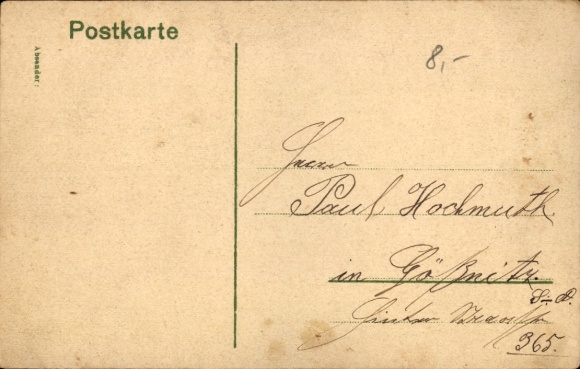 Postkarte
Absender:
8,-
Herrn
Paul Hochmuth.
in Gößnitz.
S.-A.
365.